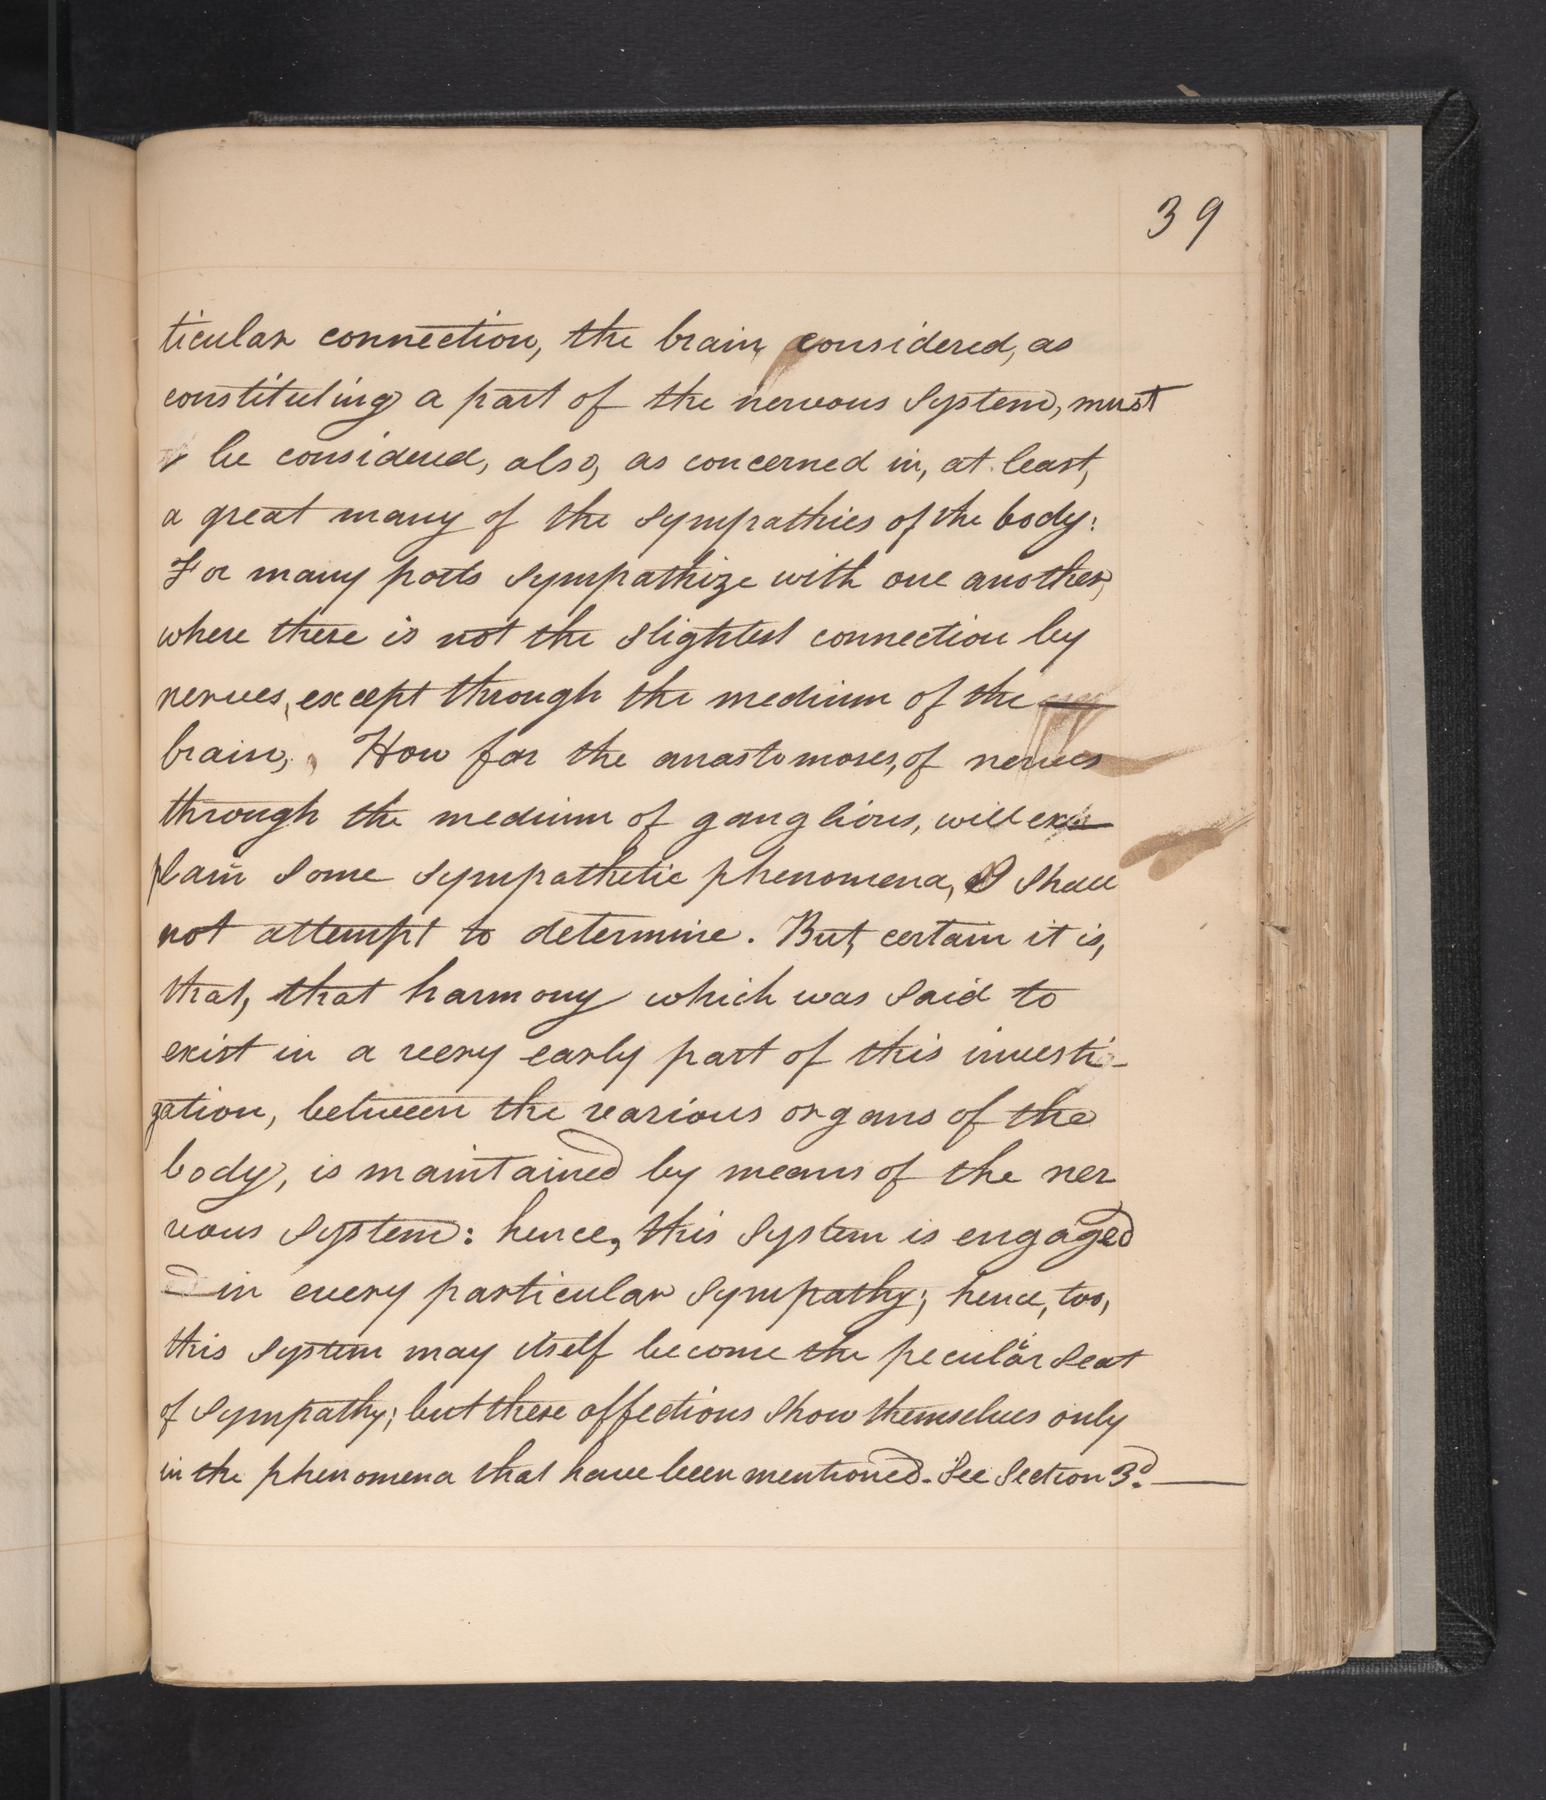 39
ticular connection, the brain, considered, as
constituting a part of the nervous system, must
be considered, also, as concerned in, at least,
a great many of the sympathies of the body:
For many parts sympathize with one another,
where there is not the slightest connection by
nerves, except through the medium of the
brain, How far the anastomoses, of nerves
through the medium of ganglions, will ex
plain some sympathetic phenomena, I shall
not attempt to determine. But, certain it is,
that, that harmony which was said to
exist in a very early part of this investi-
gation, between the various organs of the
body, is maintained by means of the ner
vous system: hence, this system is engaged
in every particular sympathy; hence, too,
this system may itself become the peculiar seat
of sympathy; but these affections show themselves only
in the phenomena that have been mentioned. See Section 3d.